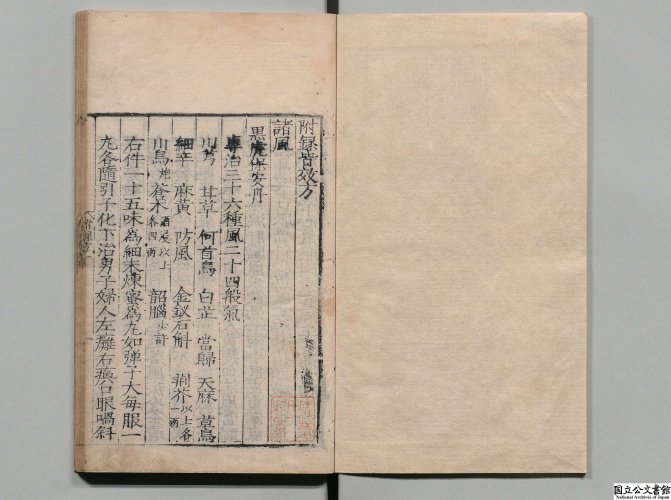 附録皆效方
諸風
黑虎保安丹
專治三十六種風二十四般氣
川芎 甘草 何首烏 白芷 當歸 天麻 草烏
細辛 麻黃 防風 金釵石斛 荊芥以上各一兩
川烏炮 蒼朮酒浸以上各四兩 韶腦少許
右件一十五味為細末煉蜜為丸如彈子大每服一
丸各隨引子化下治男子婦人左癱右瘓口眼喎斜
国立公文書館
National Archives of Japan